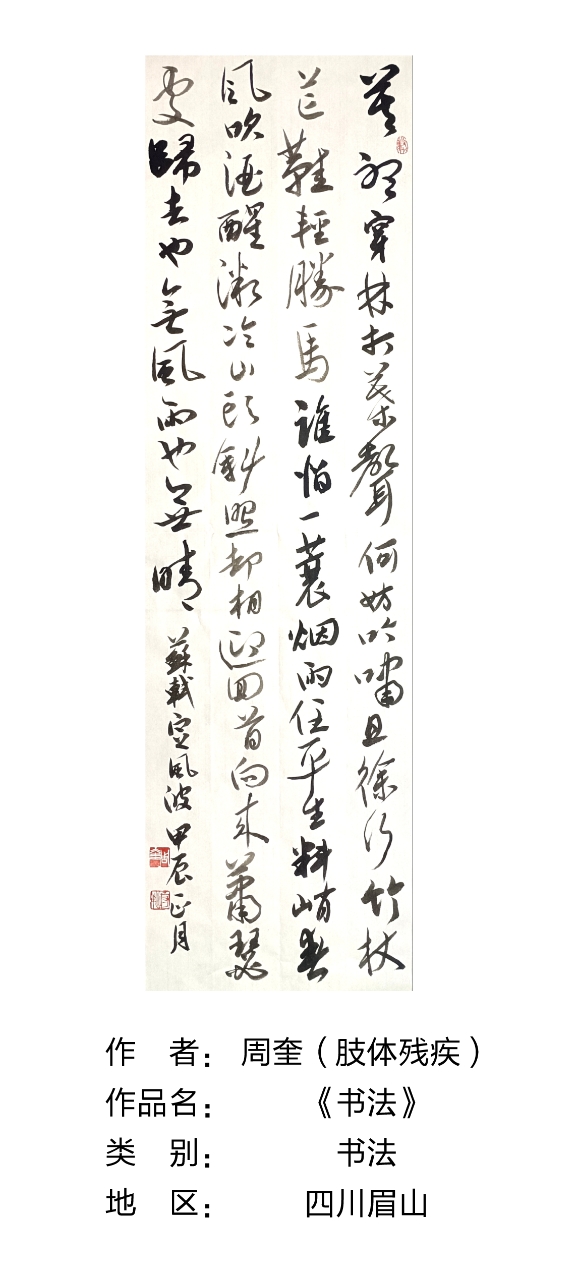 莫聽穿林打葉聲何妨吟嘯且徐行竹杖
芒鞋輕勝馬誰怕一蓑烟雨任平生料峭春
風吹酒醒微冷山頭斜照却相迎回首向来蕭瑟
處歸去也無風雨也無晴 蘇軾定風波甲辰正月
作 者：周奎（肢体残疾）
作品名：《书法》
类 别：书法
地 区：四川眉山